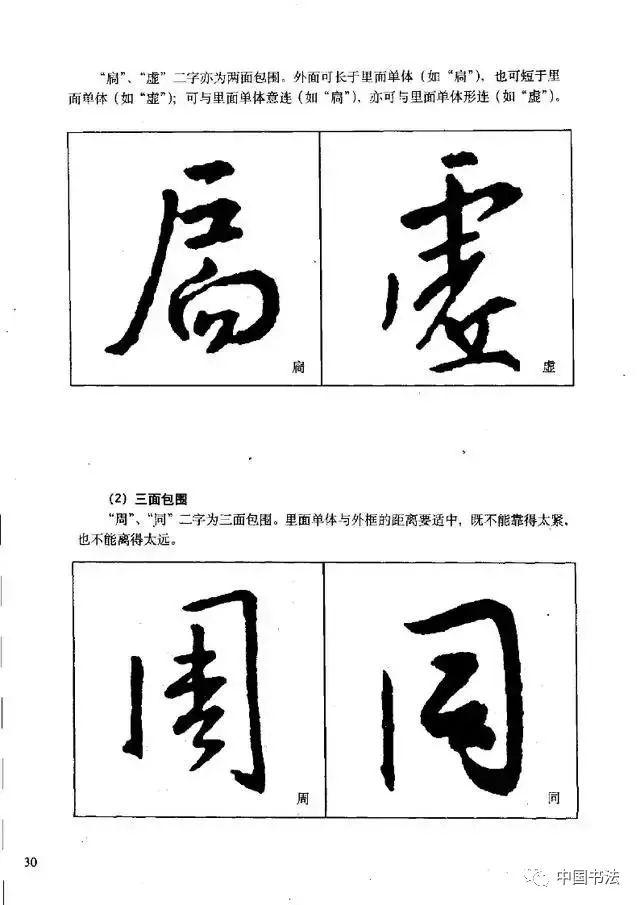 “扄”、“虚”二字亦为两面包围。外面可长于里面单体（如“扄”），也可短于里
面单体（如“虚”）；可与里面单体意连（如“扄”），亦可与里面单体形连（如“虚”）。
扄 虚
扄 虚
（2）三面包围
“周”、“同”二字为三面包围。里面单体与外框的距离要适中，既不能靠得太紧，
也不能离得太远。
周 同
周 同
30
中国书法